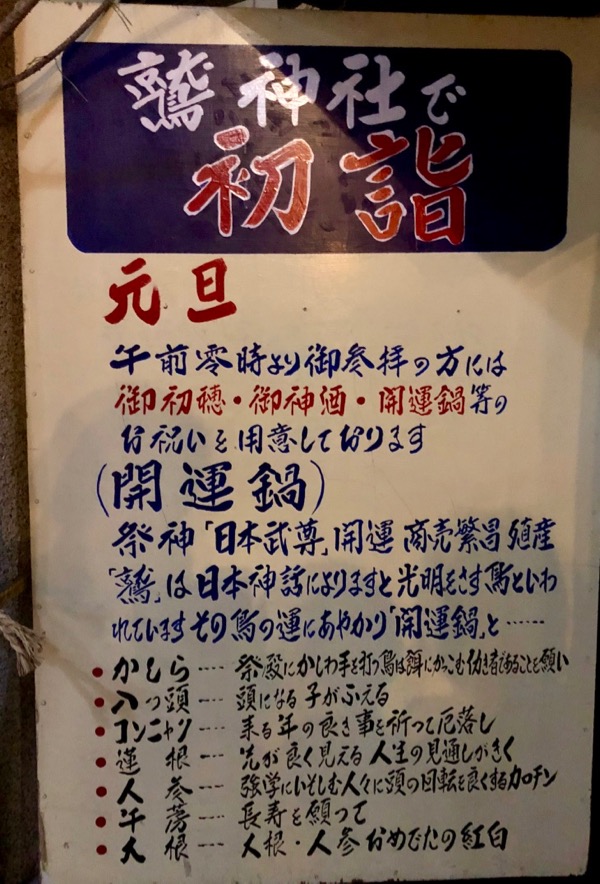 鷲神社で
初詣
元旦
午前零時より御参拝の方には
御初穂・御神酒・開運鍋等の
お祝いを用意しております
(開運鍋)
祭神「日本武尊」開運 商売繁昌 殖産
「鷲」は日本神話によりますと光明をさす鳥といわ
れています その鳥の運にあやかり「開運鍋」と……
●かしら---- 祭殿にかしわ手を打つ鳥は餌にかっこむ働き者であることを願い
●八つ頭---- 頭になる 子がふえる
●コンニャク---- 来る年の良き事を祈って厄落し
●蓮根---- 先が良く見える 人生の見通しがきく
●人参---- 強学にいそしむ人々に頭の回転を良くするカロチン
●牛蒡---- 長寿を願って
●大根---- 大根・人参 おめでたの紅白